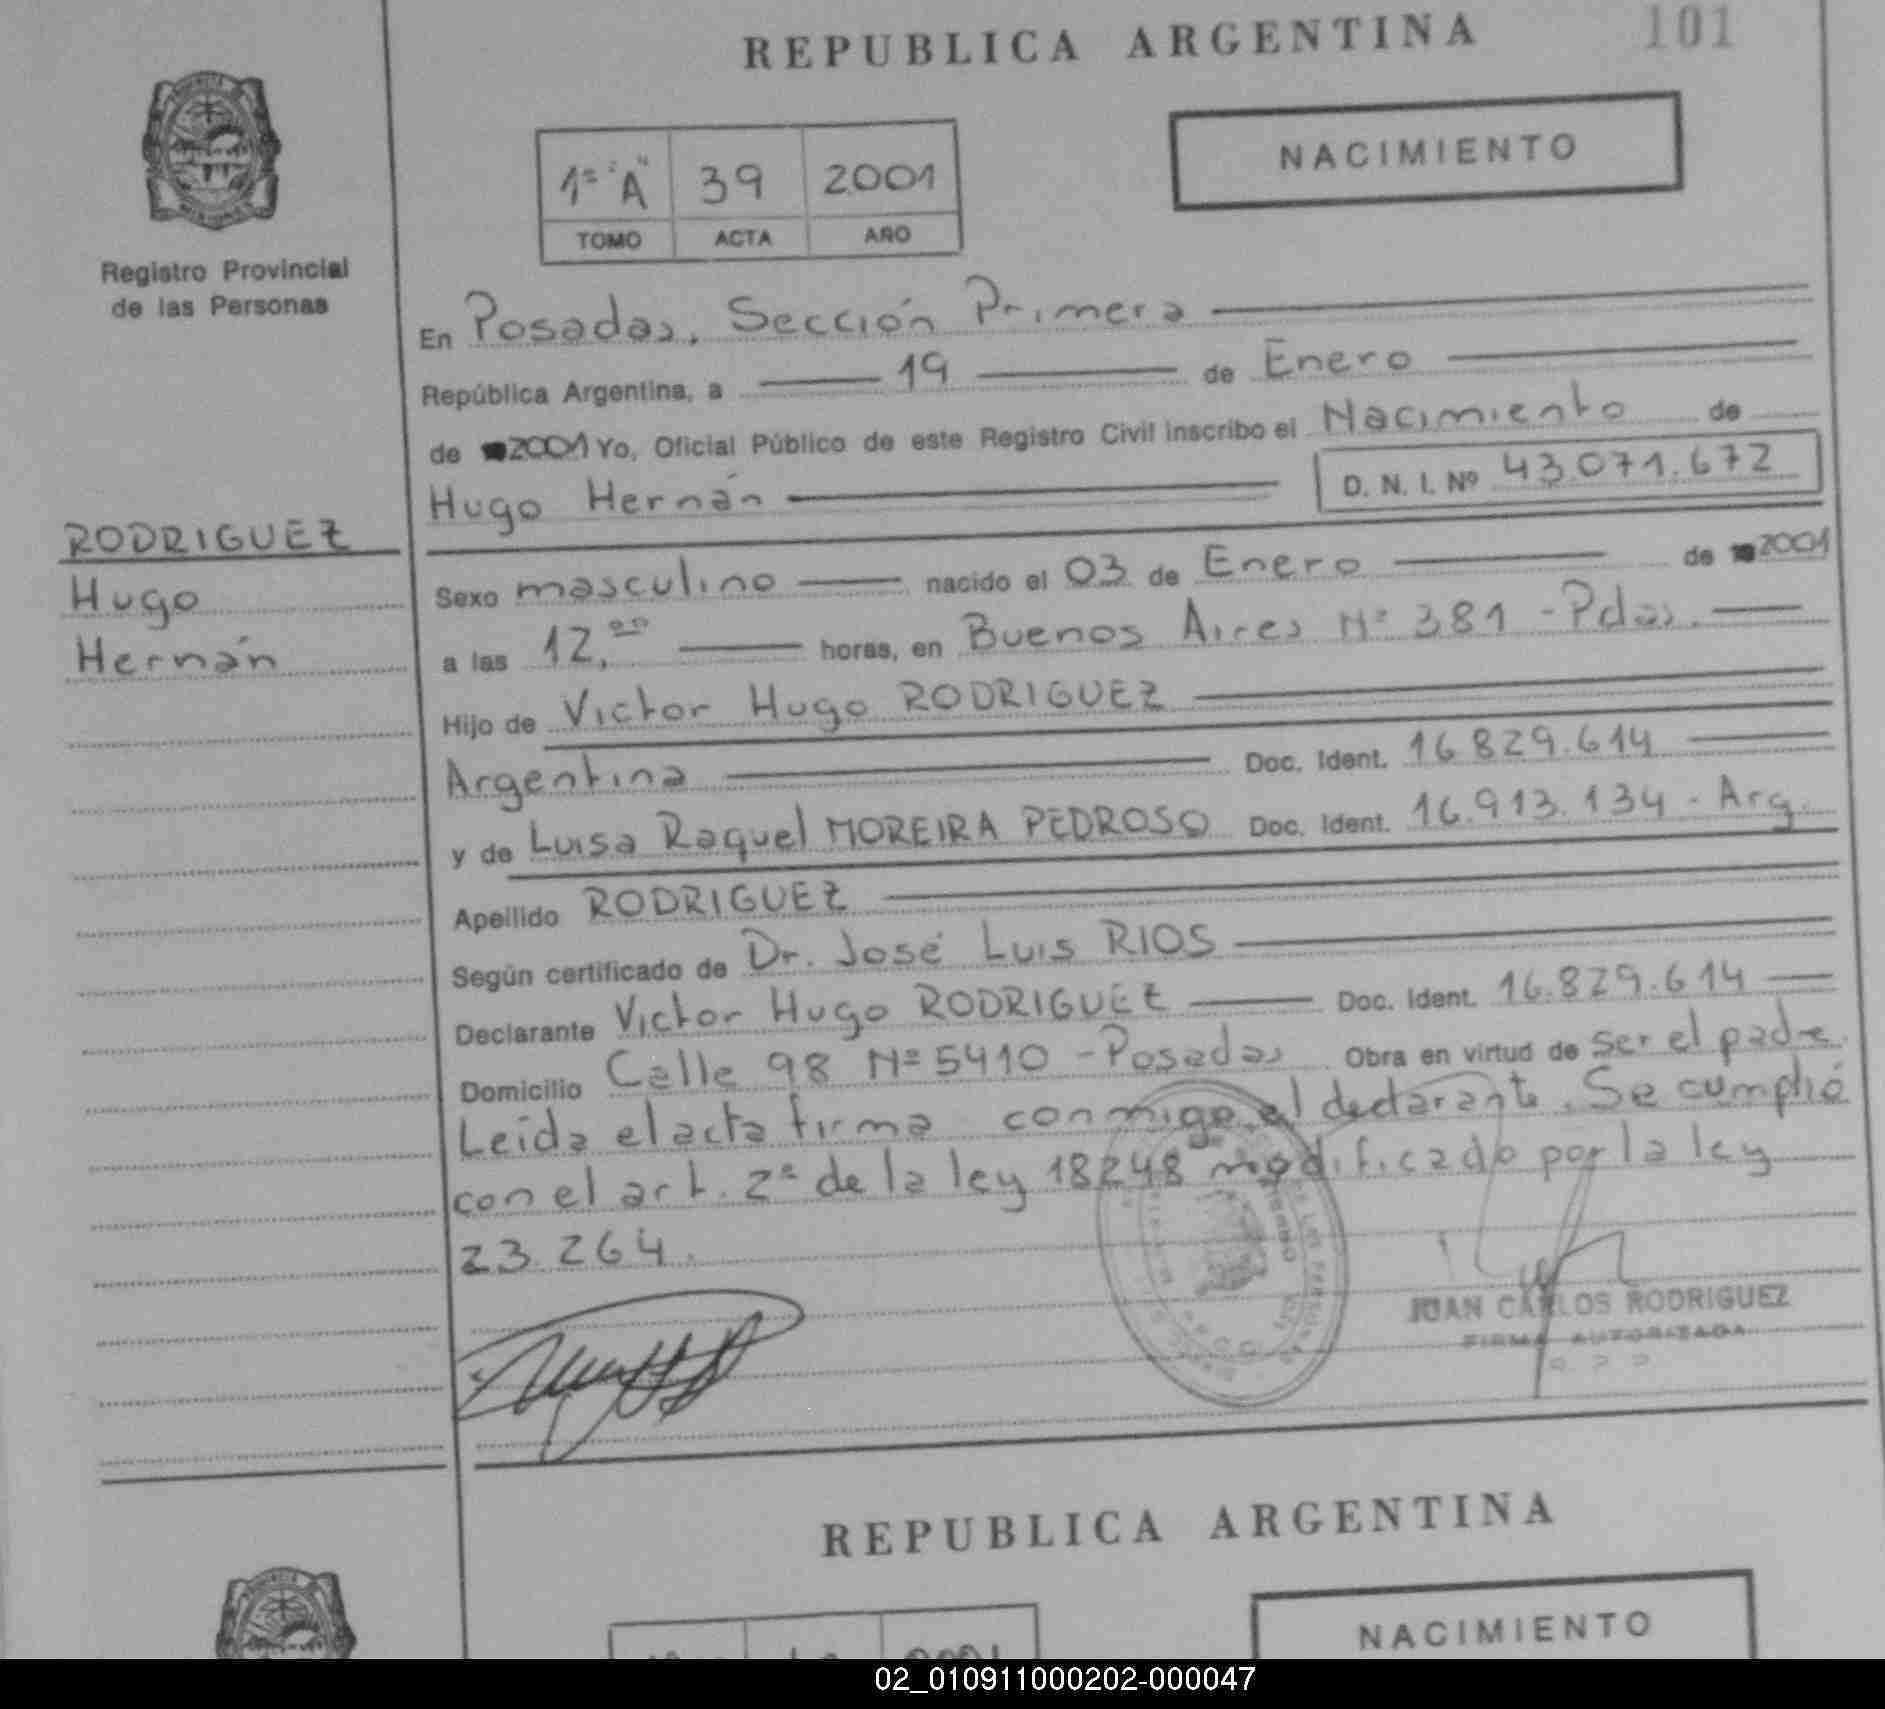 REPUBLICA ARGENTINA
101
NACIMIENTO
1ª "A" 39 2001
TOMO ACTA AÑO
Registro Provincial
de las Personas
En Posadas, Sección Primera
República Argentina, a 19 de Enero
de 2001 Yo, Oficial Público de este Registro Civil inscribo el Nacimiento de
Hugo Hernán D. N. I. Nº 43.071.672
RODRIGUEZ
Hugo
Hernán
Sexo masculino nacido el 03 de Enero de 2001
a las 12,00 horas, en Buenos Aires Nº 381 - Pdas.
Hijo de Victor Hugo RODRIGUEZ
Argentina Doc. Ident. 16.829.614
y de Luisa Raquel MOREIRA PEDROSO Doc. Ident. 16.913.134 - Arg.
Apellido RODRIGUEZ
Según certificado de Dr. José Luis RIOS
Declarante Victor Hugo RODRIGUEZ Doc. Ident. 16.829.614
Domicilio Calle 98 Nº 5410 - Posadas Obra en virtud de ser el padre.
Leida el acta firma conmigo el declarante. Se cumplió
con el art. 2º de la ley 18248 modificado por la ley
23.264.
JUAN CARLOS RODRIGUEZ
FIRMA AUTORIZADA
REPUBLICA ARGENTINA
NACIMIENTO
02_010911000202-000047